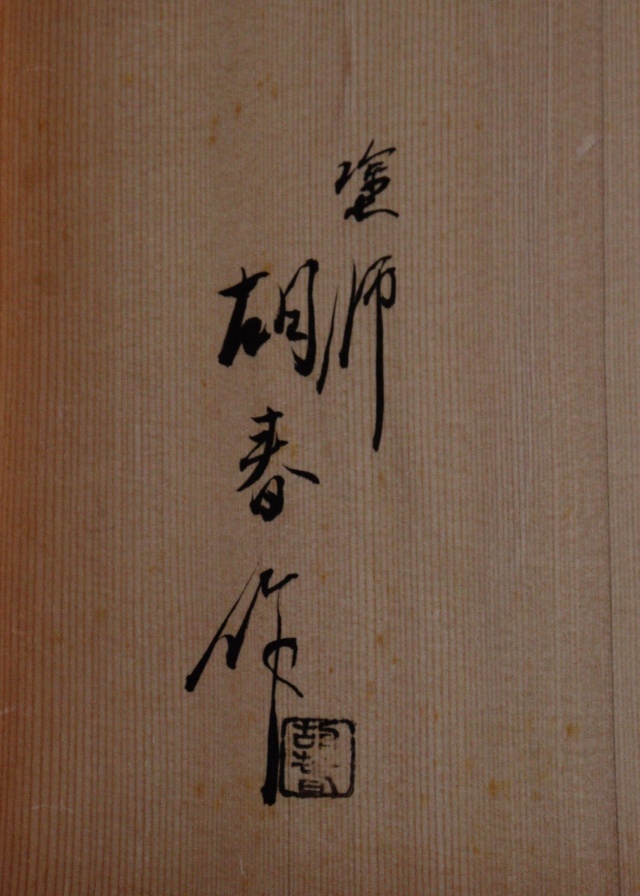 塗師
胡春作
胡春